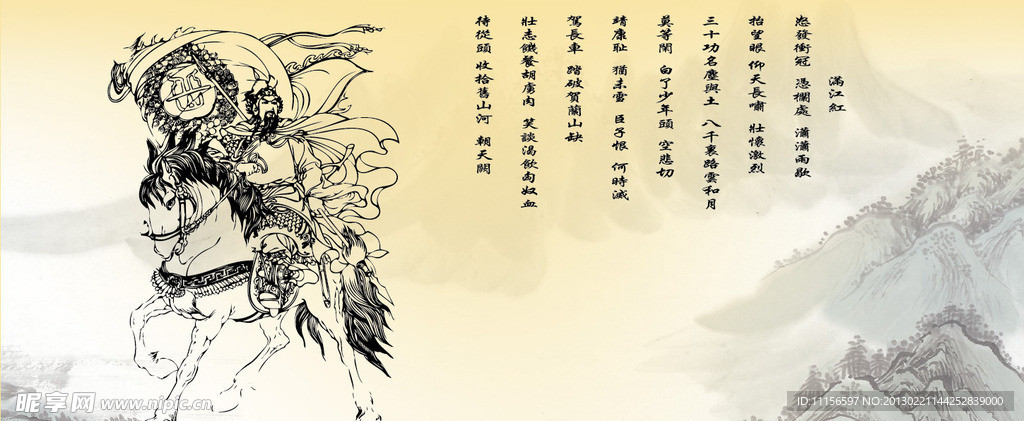 滿江紅
怒發衝冠 憑欄處 瀟瀟雨歇
抬望眼 仰天長嘯 壯懷激烈
三十功名塵與土 八千裏路雲和月
莫等閑 白了少年頭 空悲切
靖康耻 猶未雪 臣子恨 何時滅
駕長車 踏破賀蘭山缺
壯志饑餐胡虜肉 笑談渴飲匈奴血
待從頭 收拾舊山河 朝天闕
昵享网 www.nipic.cn
ID:11156597 NO:20130221144252839000